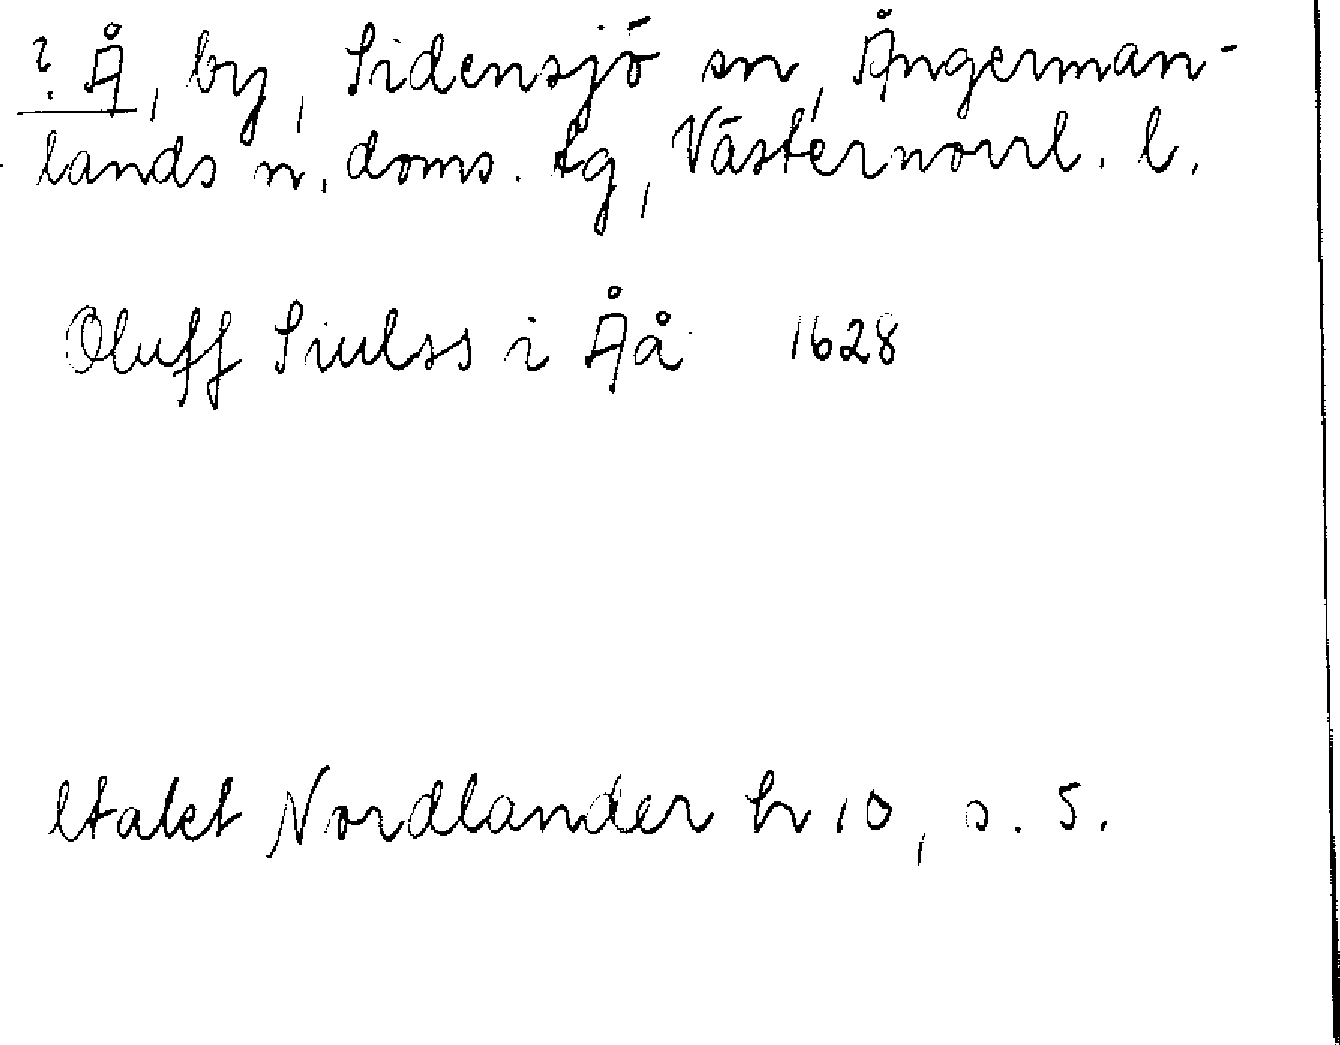 ? Å, by, Sidensjö sn, Ångerman-
lands n. doms. tg, Västernorrl. l.
Oluff Siulss i Åå 1628
Utakt Nordlander hr 10, s. 5.